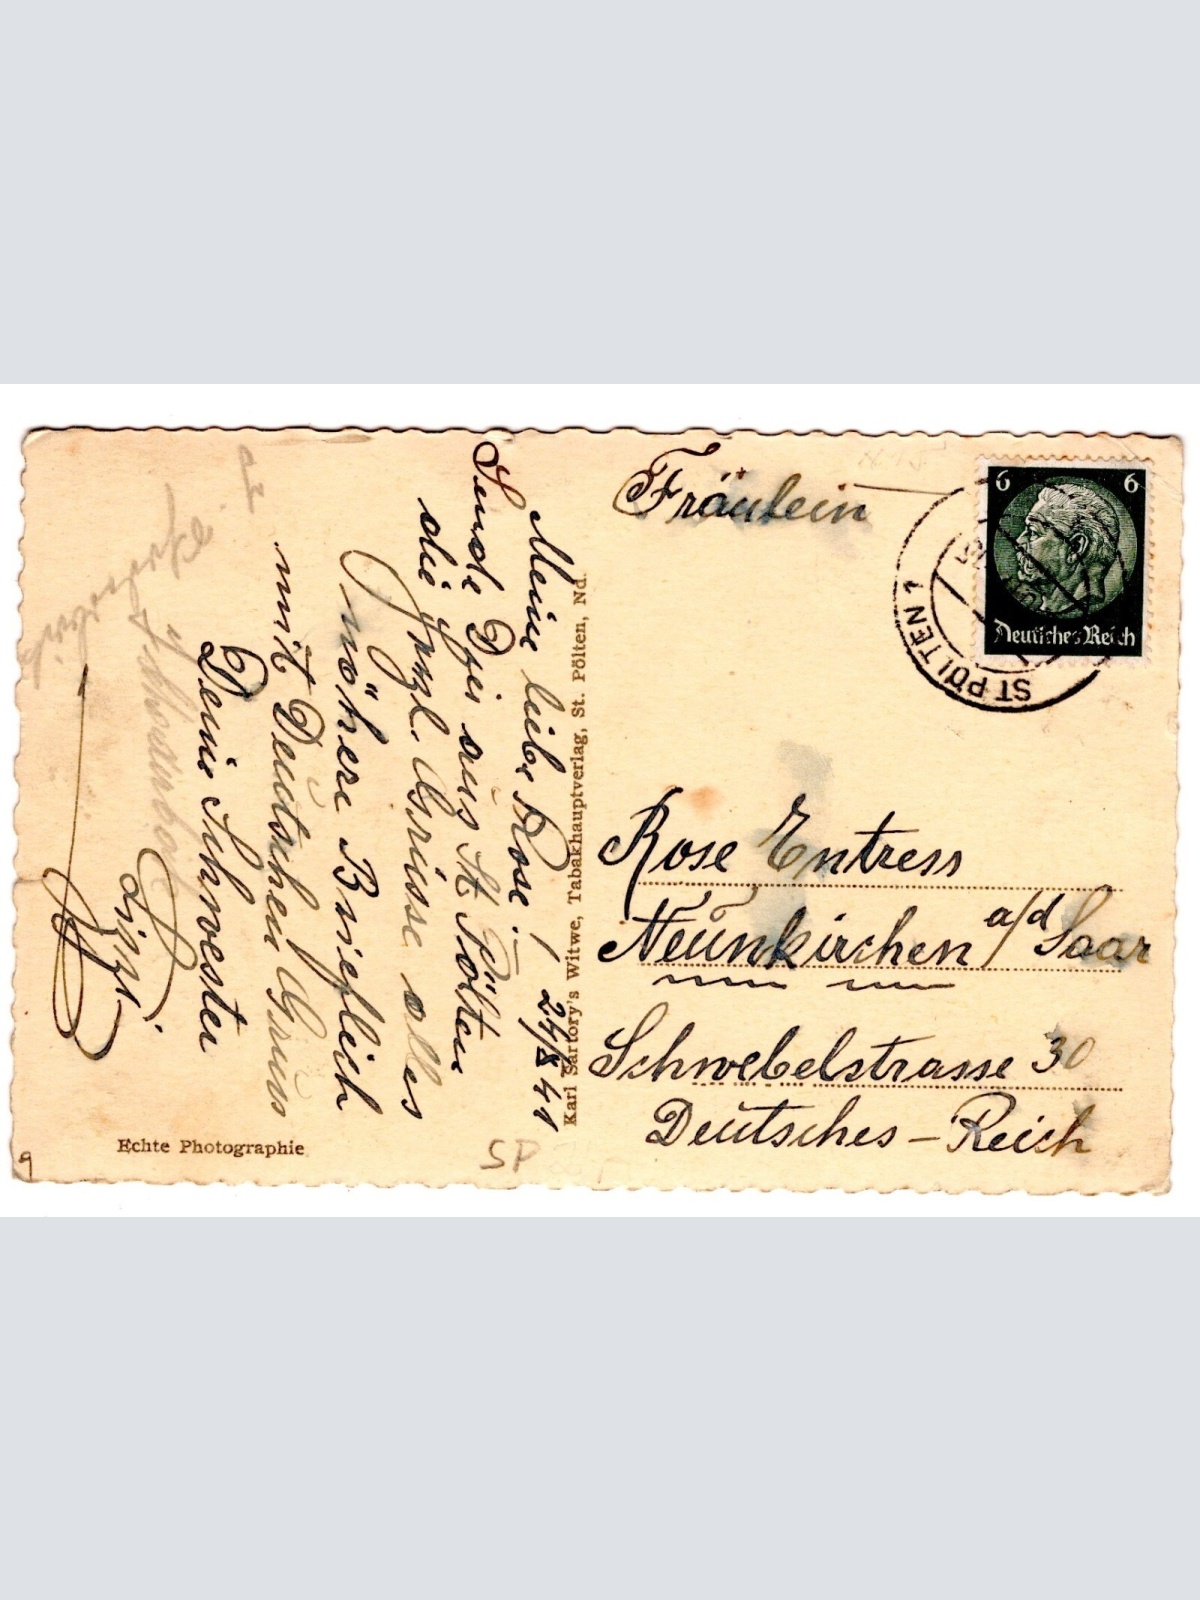 Meine liebe Rose!
24/X 41
Sende Dir aus St. Pölten
die herzl. Grüsse alles
nähere Brieflich
mit Deutschen Gruss
Deine Schwester
Lizzi.
Echte Photographie
Karl Sartory's Witwe, Tabakhauptverlag, St. Pölten, Nd.
SP
9
6 6
Deutsches Reich
ST PÖLTEN 1
Fräulein
Rose Entress
Neunkirchen a/d Saar
Schwebelstrasse 30
Deutsches-Reich